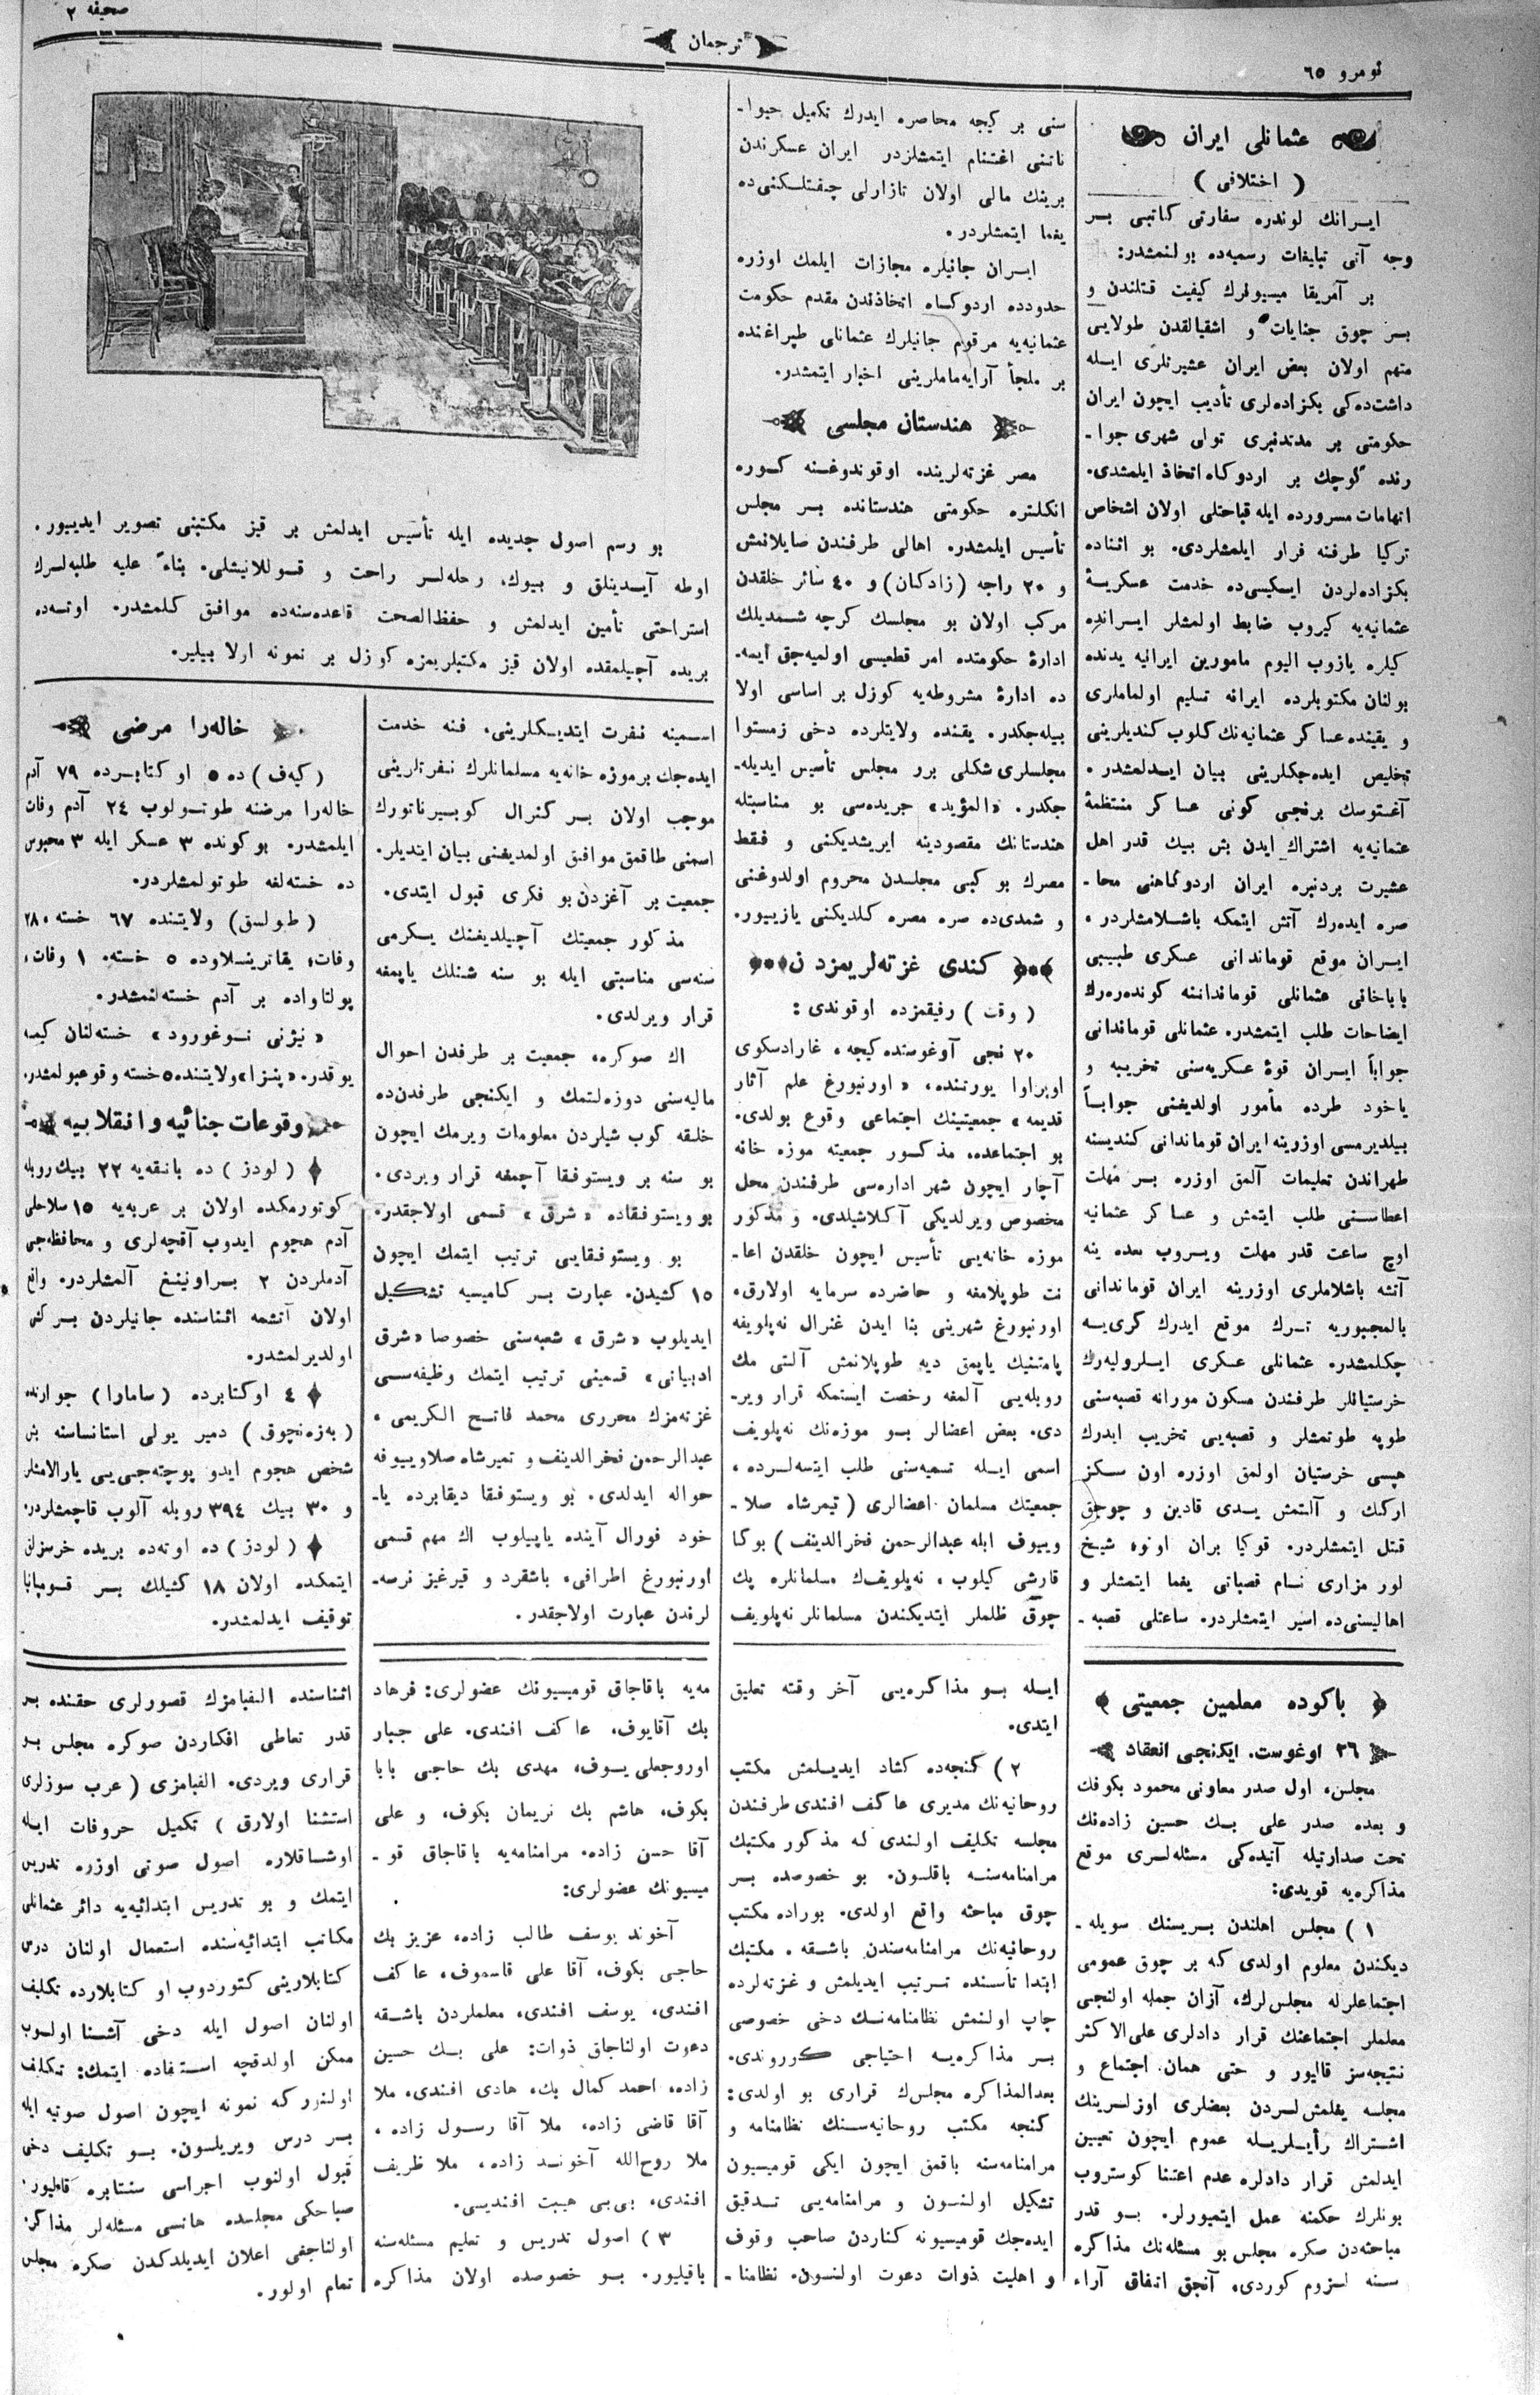 صحیفه ٢
ترجمان
نومرو ٦٥
عثمانلی ایران
( اختلافی )
ایرانك لوندره سفارتی كاتبی بر
وجه آتی تبلیغات رسمیه‌ده بولنمشدر:
بر آمریقا میسیونرك كیفیت قتلندن و
بر چوق جنایات و اشقیالقدن طولایی
متهم اولان بعض ایران عشیرتلری ایله
داشت‌ده‌كی بكزاده‌لری تأدیب ایچون ایران
حكومتی بر مدتدنبری تولی شهری جوا-
رنده كوچك بر اردوكاه اتخاذ ایلمشدی.
اتهامات مسرورده ایله قباحتلی اولان اشخاص
تركیا طرفنه فرار ایلمشلردی. بو اثناده
بكزاده‌لردن ایكیسی‌ده خدمت عسكریۀ
عثمانیه‌یه كیروب ضابط اولمشلر ایرانده
كیلره یازوب الیوم مامورین ایرانیه یدنده
بولنان مكتوبلرده ایرانه تسلیم اولماملری
و یقینده عساكر عثمانیه‌نك كلوب كندیلرینی
تخلیص ایده‌جكلرینی بیان ایدلمشدر.
آغستوسك برنجی كونی عساكر منتظمۀ
عثمانیه‌یه اشتراك ایدن بش بیك قدر اهل
عشیرت بردنبره ایران اردوكاهنی محا-
صره ایده‌رك آتش ایتمكه باشلامشلردر.
ایران موقع قوماندانی عسكری طبیبی
باباخانی عثمانلی قوماندانینه كونده‌ره‌رك
ایضاحات طلب ایتمشدر. عثمانلی قوماندانی
جواباً ایران قوۀ عسكریه‌سنی تخریبه و
یاخود طرده مأمور اولدیغنی جواباً
بیلدیرمسی اوزرینه ایران قوماندانی كندیسنه
طهراندن تعلیمات آلمق اوزره بر مهلت
اعطاسنی طلب ایتمش و عساكر عثمانیه
اوچ ساعت قدر مهلت ویروب بعده ینه
آتشه باشلاملری اوزرینه ایران قوماندانی
بالمجبوریه ترك موقع ایدرك كری‌یه
چكلمشدر. عثمانلی عسكری ایلرولیه‌رك
خرستیانلر طرفندن مسكون مورانه قصبه‌سنی
طوپه طوتمشلر و قصبه‌یی تخریب ایدرك
هپسی خرستیان اولمق اوزره اون سكز
اركك و آلتمش یدی قادین و چوجق
قتل ایتمشلردر. قوكیا بران اونوه شیخ
لور مزاری نام قصباتی یغما ایتمشلر و
اهالیسنی‌ده اسیر ایتمشلردر. ساعتلی قصبه-
سنی بر كیجه محاصره ایدرك تكمیل حیوا-
ناتنی اغتنام ایتمشلزدر ایران عسكرندن
برینك مالی اولان نازارلی چفتلكنی‌ده
یغما ایتمشلردر.
ایران جانیلره مجازات ایلمك اوزره
حدودده اردوكاه اتخاذندن مقدم حكومت
عثمانیه‌یه مرقوم جانیلرك عثمانلی طپراغنده
بر ملجأ آرایه‌ماملرینی اخبار ایتمشدر.
هندستان مجلسی
مصر غزته‌لرینده اوقوندوغنه كوره
انكلتره حكومتی هندستانده بر مجلس
تأسیس ایلمشدر. اهالی طرفندن صایلانمش
و ٢٠ راجه (زادكان) و ٤٠ سائر خلقدن
مركب اولان بو مجلسك كرچه شمدیلك
ادارۀ حكومتده امر قطعیسی اولمیه‌جق ایسه.
ده ادارۀ مشروطه‌یه كوزل بر اساسی اولا
بیله‌جكدر. یقنده ولایتلرده دخی زمستوا
مجلسلری شكلی برر مجلس تأسیس ایدیله-
جكدر. «المؤید» جریده‌سی بو مناسبتله
هندستانك مقصودینه ایریشدیكنی و فقط
مصرك بو كبی مجلسدن محروم اولدوغنی
و شمدی‌ده صره مصره كلدیكنی یازییور.
كندی غزته‌لریمزدن
( وقت ) رفیقمزده اوقوندی :
٢٠ نجی آوغوستده كیجه، غارادسكوی
اوبراوا یورتنده، «اورنبورغ علم آثار
قدیمه» جمعیتینك اجتماعی وقوع بولدی.
بو اجتماعده، مذكور جمعیته موزه خانه
آچار ایچون شهر اداره‌سی طرفندن محل
مخصوص ویرلدیكی آكلاشیلدی. و مذكور
موزه خانه‌یی تأسیس ایچون خلقدن اعا-
نت طوپلامغه و حاضرده سرمایه اولارق،
اورنبورغ شهرینی بنا ایدن غنرال نه‌پلویفه
پامتنیك یاپمق دیه طوپلانمش آلتی مك
روبله‌یی آلمغه رخصت ایستمكه قرار ویر-
دی. بعض اعضالر بو موزه‌نك نه‌پلویف
اسمی ایله تسمیه‌سنی طلب ایتسه‌لرده،
جمعیتك مسلمان اعضالری ( تیمرشاه صلا-
وییوف ایله عبدالرحمن فخرالدینف ) بوكا
قارشی كیلوب، نه‌پلویفك مسلمانلره پك
چوق ظلملر ایتدیكندن مسلمانلر نه‌پلویف
بو رسم اصول جدیده ایله تأسیس ایدلمش بر قیز مكتبنی تصویر ایدییور.
اوطه آیدینلق و بیوك، رحله‌لر راحت و قوللانیشلی. بناءً علیه طلبه‌لرك
استراحتی تأمین ایدلمش و حفظ‌الصحت قاعده‌سنه‌ده موافق كلمشدر. اوته‌ده
بریده آچیلمقده اولان قیز مكتبلریمزه كوزل بر نمونه اولا بیلیر.
اسمینه نفرت ایتدیكلرینی، فنه خدمت
ایده‌جك بر موزه خانه‌یه مسلمانلرك نفرتلرینی
موجب اولان بر گنرال كوبیرناتورك
اسمنی طاقمق موافق اولمدیغنی بیان ایتدیلر.
جمعیت بر آغزدن بو فكری قبول ایتدی.
مذكور جمعیتك آچیلدیغنك یكرمی
سنه‌سی مناسبتی ایله بو سنه شنلك یاپمغه
قرار ویرلدی.
اك صوكره، جمعیت بر طرفدن احوال
مالیه‌سنی دوزه‌لتمك و ایكنجی طرفدن‌ده
خلقه كوب شیلردن معلومات ویرمك ایچون
بو سنه بر ویستوفقا آچمغه قرار ویردی.
بو ویستوفقاده «شرق» قسمی اولاجقدر.
بو ویستوفقایی ترتیب ایتمك ایچون
١٥ كشیدن. عبارت بر كامیسیه تشكیل
ایدیلوب «شرق» شعبه‌سنی خصوصا «شرق
ادبیاتی» قسمینی ترتیب ایتمك وظیفه‌سی
غزته‌مزك محرری محمد فاتح الكریمی،
عبدالرحمن فخرالدینف و تمیرشاه صلاوییوفه
حواله ایدلدی. بو ویستوفقا دیقابرده یا-
خود فورال آینده یاپیلوب اك مهم قسمی
اورنبورغ اطرافی، باشقرد و قیرغیز نرسه-
لرندن عبارت اولاجقدر.
خاله‌را مرضی
(كیه‌ف) ده ٥ اوكتابرده ٧٩ آدم
خاله‌را مرضنه طوتولوب ٢٤ آدم وفات
ایلمشدر. بو كونده ٣ عسكر ایله ٣ محبوس
ده خسته‌لغه طوتولمشلردر.
(طولسق) ولایتنده ٦٧ خسته، ٢٨
وفات؛ یقاترینسلاوده ٥ خسته، ١ وفات،
پولتاواده بر آدم خسته‌لنمشدر.
«نیژنی نوغورود» خسته‌لنان كیمسه
یوقدر. «پنزا» ولایتنده ٥ خسته وقوعبولمشدر.
وقوعات جنائیه و انقلابیه
( لودز ) ده بانقه‌یه ٢٢ بیك روبله
كوتورمكده اولان بر عربه‌یه ١٥ سلاحلی
آدم هجوم ایدوب آقچه‌لری و محافظه‌جی
آدملردن ٢ براونینغ آلمشلردر. واقع
اولان آتشمه اثناسنده جانیلردن بر كشی
اولدیرلمشدر.
٤ اوكتابرده (سامارا) جوارنده
(به‌زه‌نچوق) دمیر یولی استانساسنه بش
شخص هجوم ایدو پوچته‌جی‌یی یارالامشلر
و ٣٠ بیك ٣٩٤ روبله آلوب قاچمشلردر.
( لودز ) ده اوته‌ده بریده خرسزلق
ایتمكده اولان ١٨ كشیلك بر قومپانیا
توقیف ایدلمشدر.
باكوده معلمین جمعیتی
٢٦ اوغوست. ایكنجی انعقاد
مجلس، اول صدر معاونی محمود بكوفك
و بعده صدر علی بك حسین زاده‌نك
تحت صدارتیله آتیده‌كی مسئله‌لری موقع
مذاكره‌یه قویدی:
١ ) مجلس اهلندن بریسنك سویله-
دیكندن معلوم اولدی كه بر چوق عمومی
اجتماعلرله مجلس‌لرك، آزان جمله اولنجی
معلملر اجتماعنك قرار دادلری علی‌الاكثر
نتیجه‌سز قالیور و حتی همان اجتماع و
مجلسه یغلمش‌لردن بعضلری اوزلرینك
اشتراك رأیلریله عموم ایچون تعیین
ایدلمش قرار دادلره عدم اعتنا كوستروب
بونلرك حكمنه عمل ایتمیورلر. بو قدر
مباحثه‌دن صكره مجلس بو مسئله‌نك مذاكره
سنه لزوم كوردی، آنجق اتفاق آراء
ایله بو مذاكره‌یی آخر وقته تعلیق
ایتدی.
٢ ) كنجه‌ده كشاد ایدیلمش مكتب
روحانیه‌نك مدیری عاكف افندی طرفندن
مجلسه تكلیف اولندی له مذكور مكتبك
مرامنامه‌سنه باقلسون. بو خصوصده بر
چوق مباحثه واقع اولدی. بوراده مكتب
روحانیه‌نك مرامنامه‌سندن باشقه، مكتبك
ابتدا تأسسنده ترتیب ایدیلمش و غزته‌لرده
چاپ اولنمش نظامنامه‌نك دخی خصوصی
بر مذاكره‌یه احتیاجی كورروندی.
بعدالمذاكره مجلس‌ك قراری بو اولدی:
كنجه مكتب روحانیه‌سنك نظامنامه و
مرامنامه‌سنه باقمق ایچون ایكی قومیسیون
تشكیل اولنسون و مرامنامه‌یی تدقیق
ایده‌جك قومیسیونه كناردن صاحب وقوف
و اهلیت ذوات دعوت اولنسون. نظامنا-
مه‌یه باقاجاق قومیسیونك عضولری: فرهاد
بك آقایوف، عاكف افندی. علی جبار
اوروجعلی یوف، مهدی بك حاجی بابا
بكوف، هاشم بك نریمان بكوف، و علی
آقا حسن زاده. مرامنامه‌یه باقاجاق قو-
میسیونك عضولری:
آخوند یوسف طالب زاده، عزیز بك
حاجی بكوف، آقا علی قاسموف، عاكف
افندی، یوسف افندی، معلملردن باشقه
دعوت اولناجاق ذوات: علی بك حسین
زاده، احمد كمال بك، هادی افندی، ملا
آقا قاضی زاده، ملا آقا رسول زاده،
ملا روح‌الله آخوند زاده، ملا ظریف
افندی، بی‌بی هیبت افندیسی.
٣ ) اصول تدریس و تعلیم مسئله‌سنه
باقیلیور. بو خصوصده اولان مذاكره
اثناسنده الفبامزك قصورلری حقنده بر
قدر تعاطی افكاردن صوكره مجلس بو
قراری ویردی. الفبامزی (عرب سوزلری
استثنا اولارق) تكمیل حروفات ایله
اوشاقلاره اصول صوتی اوزره تدریس
ایتمك و بو تدریس ابتدائیه‌یه دائر عثمانلی
مكاتب ابتدائیه‌سنده استعمال اولنان درس
كتابلارینی كتوردوب او كتابلارده تكلیف
اولنان اصول ایله دخی آشنا اولوب
ممكن اولدقچه استفاده ایتمك: تكلیف
اولنور كه نمونه ایچون اصول صوتیه ایله
بر درس ویریلسون. بو تكلیف دخی
قبول اولنوب اجراسی سنتابره قالیور.
صباحكی مجلسده هانسی مسئله‌لر مذاكره
اولناجغی اعلان ایدیلدكدن صكره مجلس
تمام اولور.